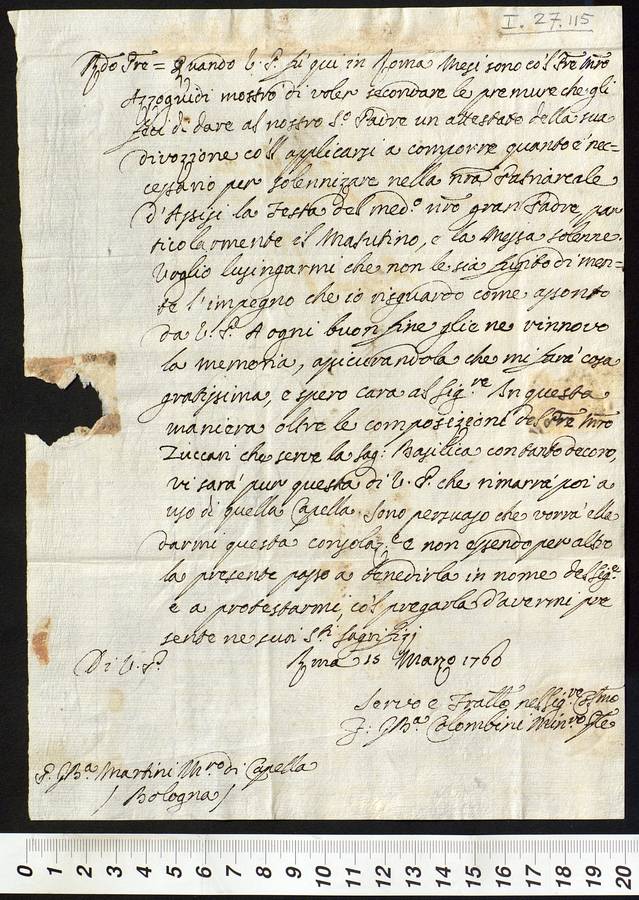 I. 27. 115
Rdo Pre = Quando V. P. fu qui in Roma Mesi sono co'l Pre Mro
Azzoguidi mostrò di voler secondare le premure che gli
feci di dare al nostro So. Padre un attestato della sua
divozione co'll applicarsi a comporre quanto è nec=
cessario per solennizare nella nra Patriarcale
d'Assisi la Festa del medo. nro gran Padre par
ticolarmente il Matutino, e la Messa solenne.
Voglio lusingarmi che non le sia fugito di men=
te l'impegno che io risguardo come assonto
da V. P. A ogni buon fine glie ne rinnovo
la memoria, assicurandola che mi farà cosa
gratissima, e spero cara al Sigre. In questa
maniera oltre le composizioni del Pre Mro
Zuccari che serve la Sag: Basilica con tanto decoro,
vi sarà pur questa di V. P. che rimarrà poi a
uso di quella Capella. Sono persuaso che vorrà ella
darmi questa consolaze. e non essendo per altro
la presente passo a benedirla in nome del Sige.
e a protestarmi, co'l pregarla d'avermi pre
sente ne suoi Sti Sagrifizj
Di V. P.
Rma 15 Marzo 1760
Servo e Fratto nel Sigre
F: G Ba. Colombini Minro Gle
P. GBa. Martini Mro di Capella
/ Bologna /
0 1 2 3 4 5 6 7 8 9 10 11 12 13 14 15 16 17 18 19 20